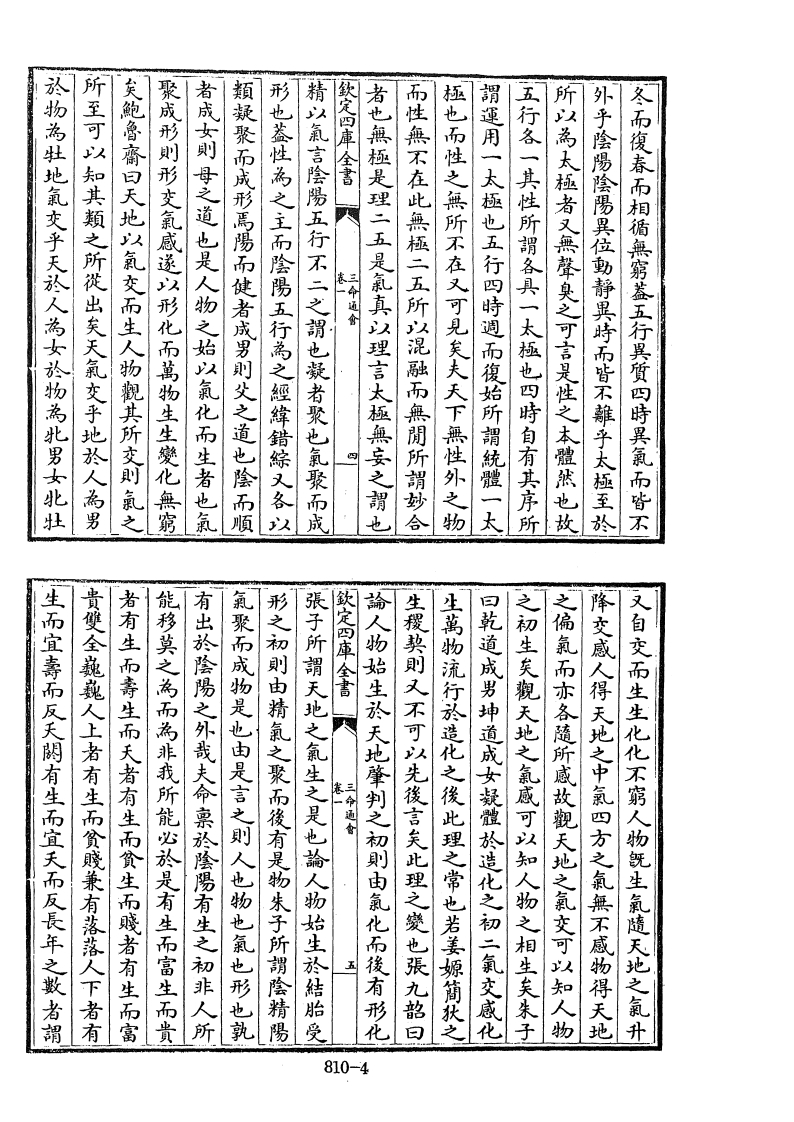 冬而復春而相循無窮葢五行異質四時異氣而皆不
外乎陰陽陰陽異位動靜異時而皆不離乎太極至於
所以為太極者又無聲臭之可言是性之本體然也故
五行各一其性所謂各具一太極也四時自有其序所
謂運用一太極也五行四時週而復始所謂統體一太
極也而性之無所不在又可見矣夫天下無性外之物
而性無不在此無極二五所以混融而無閒所謂妙合
者也無極是理二五是氣真以理言太極無妄之謂也
欽定四庫全書
三命通會
卷一
四
精以氣言陰陽五行不二之謂也凝者聚也氣聚而成
形也葢性為之主而陰陽五行為之經緯錯綜又各以
類凝聚而成形焉陽而健者成男則父之道也陰而順
者成女則母之道也是人物之始以氣化而生者也氣
聚成形則形交氣感遂以形化而萬物生生變化無窮
矣鮑魯齋曰天地以氣交而生人物觀其所交則氣之
所至可以知其類之所從出矣天氣交乎地於人為男
於物為牡地氣交乎天於人為女於物為牝男女牝牡
又自交而生生化化不窮人物旣生氣隨天地之氣升
降交感人得天地之中氣四方之氣無不感物得天地
之偏氣而亦各隨所感故觀天地之氣交可以知人物
之初生矣觀天地之氣感可以知人物之相生矣朱子
曰乾道成男坤道成女凝體於造化之初二氣交感化
生萬物流行於造化之後此理之常也若姜嫄簡狄之
生稷契則又不可以先後言矣此理之變也張九韶曰
論人物始生於天地肇判之初則由氣化而後有形化
欽定四庫全書
三命通會
卷一
五
張子所謂天地之氣生之是也論人物始生於結胎受
形之初則由精氣之聚而後有是物朱子所謂陰精陽
氣聚而成物是也由是言之則人也物也氣也形也孰
有出於陰陽之外哉夫命禀於陰陽有生之初非人所
能移莫之為而為非我所能必於是有生而富生而貴
者有生而壽生而夭者有生而貧生而賤者有生而富
貴雙全巍巍人上者有生而貧賤兼有落落人下者有
生而宜壽而反夭閼有生而宜夭而反長年之數者謂
810-4